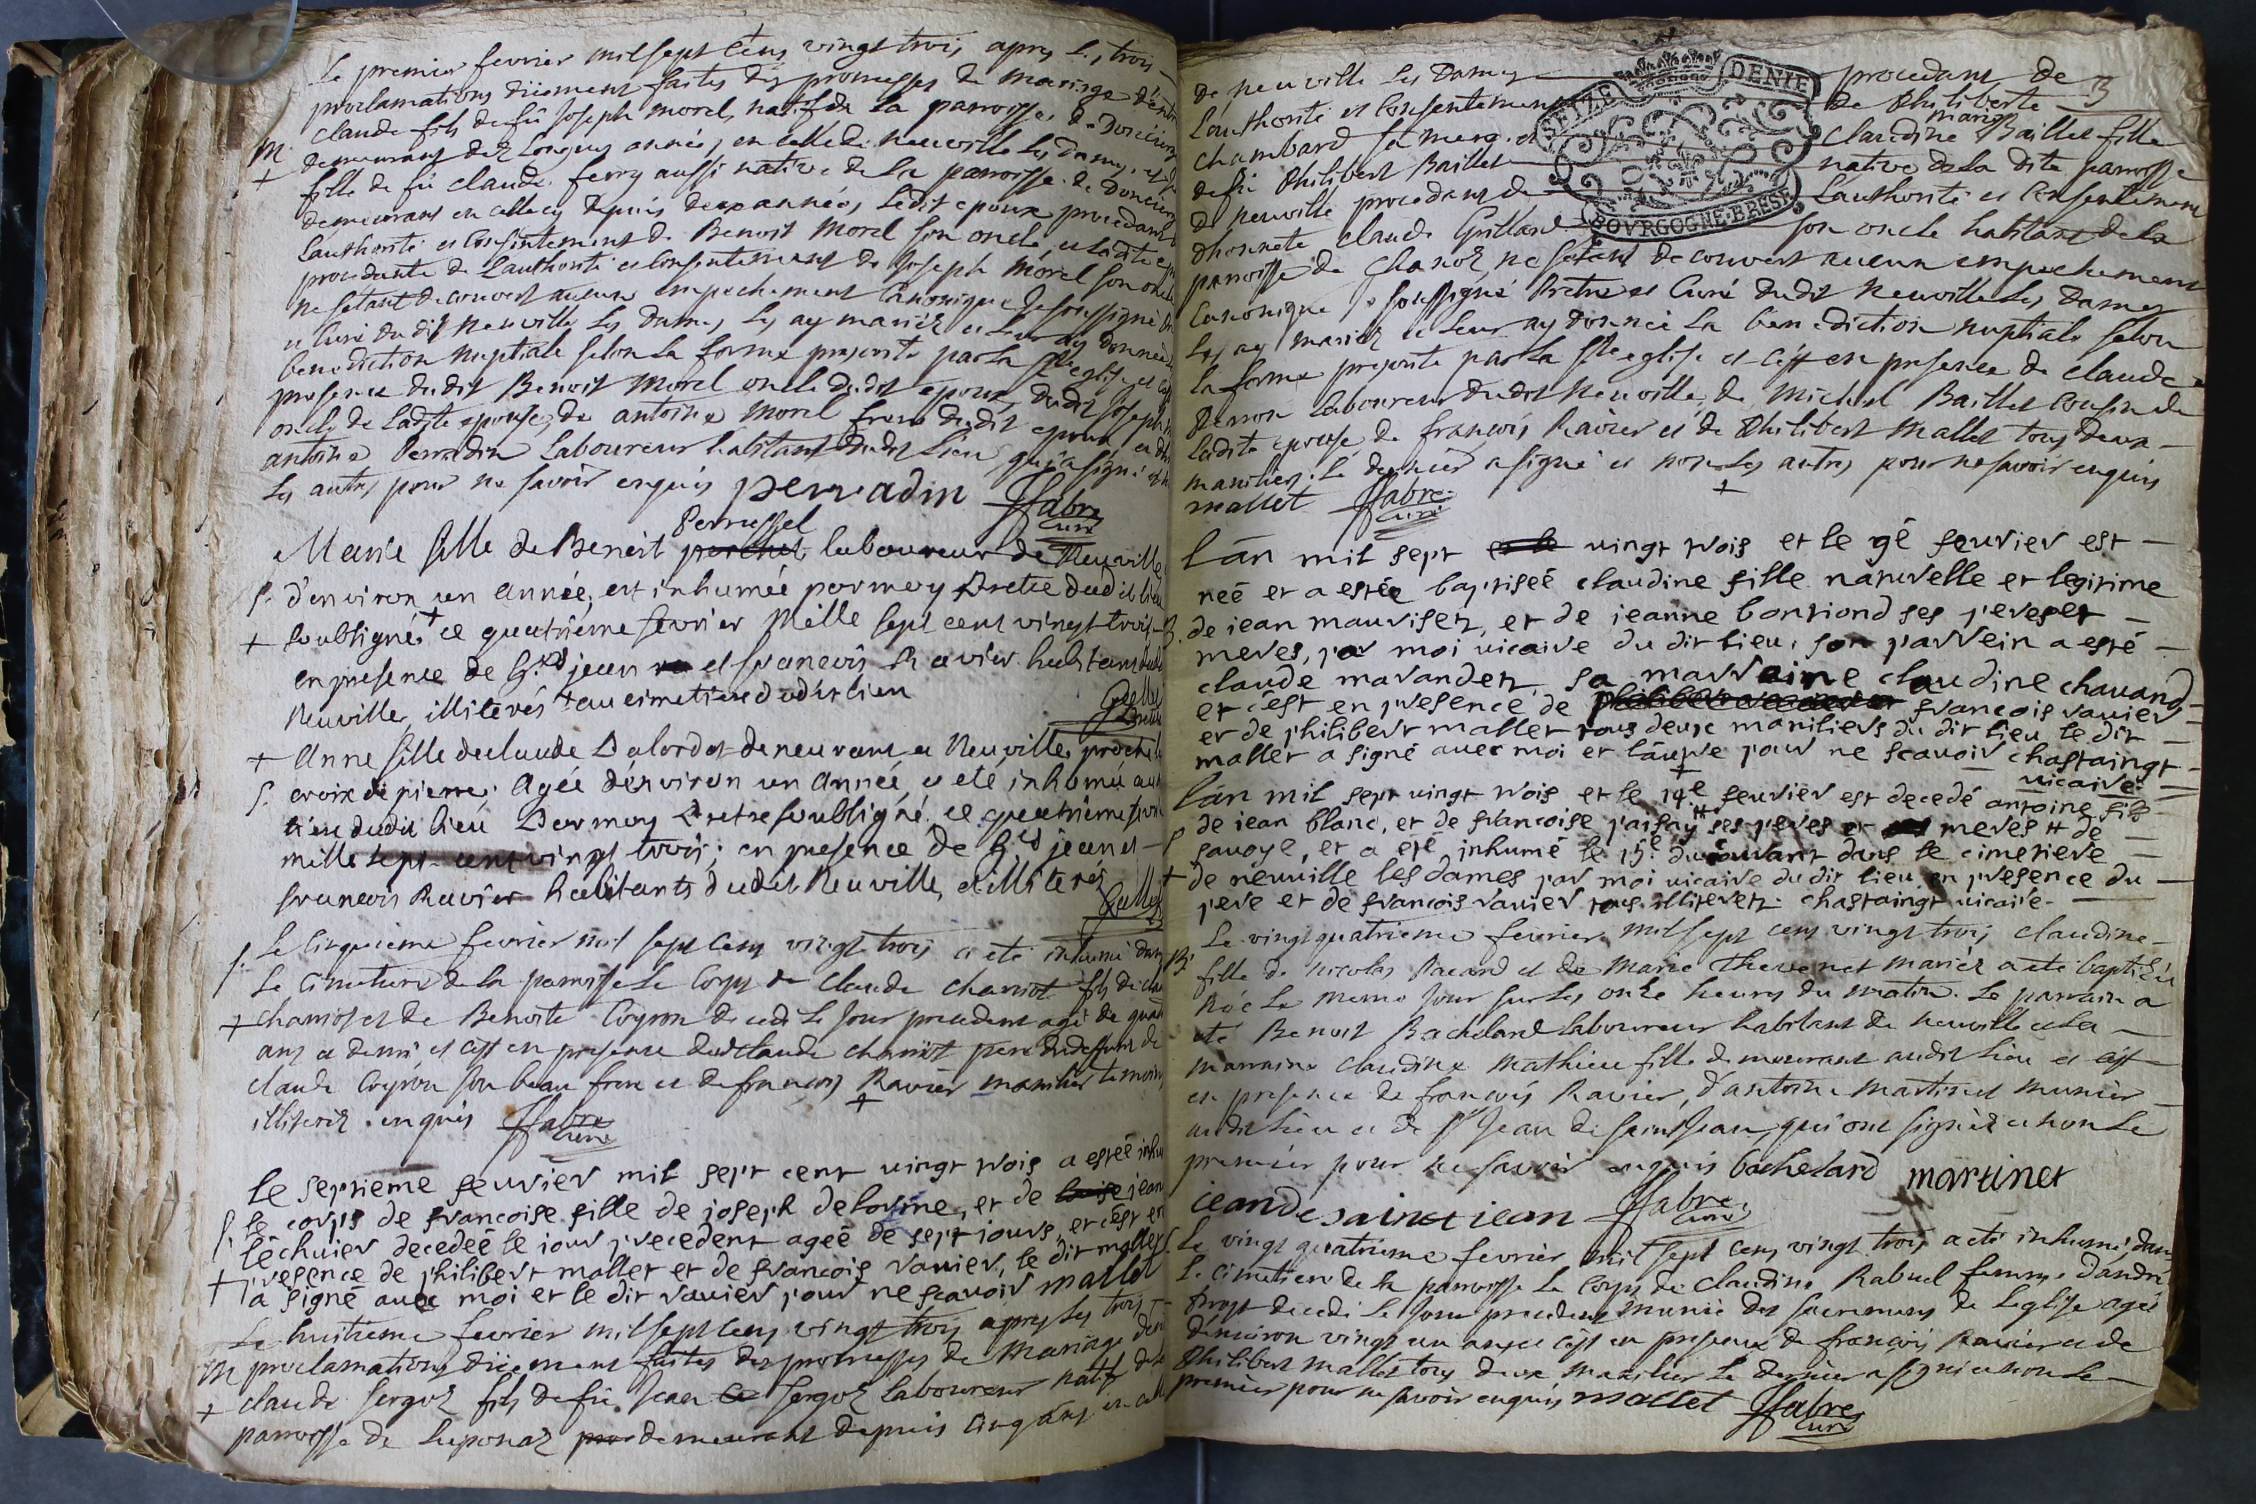 Le premier fevrier mil sept Cens vingt trois apres les trois
proclamations düement faites des promesses de mariage d'entre
claude fils de fû Joseph morel natif de la parroisse de Donciers
M. demeurant dez longues années en celle de neuville les dames, et de
+
fille de fû claude ferry aussi native de la parroisse de Donciers
demeurant en celle cy depuis deux années, ledit epoux procedant de
Lauthorité et Consentement de Benoit Morel son oncle, et ladite epouse
procedante de Lauthorité et Consentement de Joseph Morel son oncle
ne setant decouvert aucun empechement Canonique Je soussigné
et Curé dudit neuville les dames les ay mariéz et leur ay donnée
benediction nuptiale selon la forme prescrite par la Ste eglise et c'est
presence dudit Benoit morel oncle dudit epoux, dudit Joseph
oncle de Ladite epouse, de antoine morel frere dudit epoux et de
antoine Perradin Laboureur habitant dudit Lieu qui a signé et non
Les autres pour ne savoir enquis perradin ffabre
curé
Perrussel
Marie fille de Benoit perchet laboureur de Neuville
S. d'environ un année, est inhumée par moy Pretre dudit lieu
+ soubsigné + ce quatrième fevrier Mille sept cent vingt trois
en presence de Srs jean et francois Ravier habitans dudit
Neuville, illiterés + au cimetiere dudit lieu
+ Anne fille declaude Dalordot demeurant a Neuville proche la
S. croix de pierre: Agée d'environ un Année, a eté inhumée au
tiere dudit lieu Par moy Pretre soubsigné ce quatrième fevrier
mille sept cent vingt trois; en presence de Srs jean et
francois Ravier habitants dudit Neuville, et illiterés
S. Le Cinquieme fevrier mil sept Cens vingt trois a eté inhumé dans
Le Cimetiere de la parroisse Le Corps de Claude chaniot fils de claude
+ chaniot et de Benoite Coyron decedé Le Jour precedent agé de quatre
ans et demi et c'est en presence dudit claude chaniot pere dudeffunt de
claude Coyron son beau frere et de francois Ravier manilier temoins
illiteréz enquis ffabre
+ curé
Le septieme feuvier mil sept cent vingt trois a esteé inhumé
S. le corps de francoise fille de joseph delorme, et de jean
lêchuier decedeé le iour precedent ageé de sept iours, et c'est en
+ presence de philibert mallet et de francois ravier, le dit mallet
a signé avec moi et le dit ravier pour ne scavoir mallet
Le huitieme fevrier mil sept Cens vingt trois apres les trois
M proclamations düement faites des promesses de Mariage d'entre
+ claude Sergoz fils de fû Jean Sergoz Laboureur natif de la
parroisse de Luponaz demeurant depuis Cinq ans en celle
de neuville les Dames procedant de
Lauthorité et Consentement de Philiberte 3
chambard sa mere, et marie
Claudine Baillet fille
de fû Philibert Baillet native de la dite parroisse
de neuville procedant de Lauthorité et Consentement
dhonnete claude Guillard son oncle habitant de la
SEIZE DENIE
BOVRGOGNE·BRESE
parroisse de Chanoz, ne setant decouvert aucun empechement
Canonique, Je soussigné Pretre et Curé dudit Neuville Les Dames
Les ay mariéz et leur ay donnée La benediction nuptiale selon
la forme prescrite par la Ste eglise et c'est en presence de claude
Laboureur dudit Neuville, de Michel Baillet Cousin de
Ladite epouse de francois Ravier et de Philibert Mallet tous deux
maniliers. Le dernier a signé et non les autres pour ne savoir enquis
mallet ffabre +
curé
lân mil sept vingt trois et le 9e feuvier est
neé et a esteé baptiseé claudine fille naturelle et legitime
B. de iean mauvisez, et de ieanne bontiond ses peres et
meres, par moi vicaire du dit lieu, son parrein a esté
claude marandez, sa marraine claudine chavand
et c'est en presence de francois ravier
et de philibert mallet tous deux maniliers du dit lieu le dit
mallet a signé avec moi et lâutre pour ne scavoir chastaingt
+ vicaire
lân mil sept vingt trois et le 14e feuvier est decedé antoine fils
de iean blanc, et de francoise paisay ses peres et meres # de
S savoye, et a eté inhumé le 15e du courant dans le cimetiere
+ de neuville les dames par moi vicaire du dit lieu en presence du
pere et de francois ravier tous illiterez. chastaingt vicaire
B. Le vingt quatrieme fevrier mil sept cens vingt trois claudine
fille de nicolas Pacard et de Marie Thevenet mariéz a eté baptizée
née Le meme Jour sur les onze heures du matin. Le parrain a
eté Benoit Bachelard laboureur habitant de neuville et La
marraine claudine mathieu fille demeurant audit Lieu et c'est
en presence de francois Ravier, d'antoine martinet munier
audit Lieu et de Sr Jean de saint Jean, qui ont signéz et non Le
premier pour ne savoir enquis bachelard martinet
jean de sainct jean ffabre
curé
S. Le vingt quatrieme fevrier mil sept cens vingt trois a eté inhumé dans
Le Cimetiere de la parroisse Le Corps de Claudine Rabuel femme d'andré
decedé le Jour precedent munie des sacremens de Leglise agée
d'environ vingt un ans, et c'est en presence de francois Ravier et de
Philibert Mallet tous deux manilier Le dernier a signé et non Le
premier pour ne savoir enquis mallet ffabre
curé